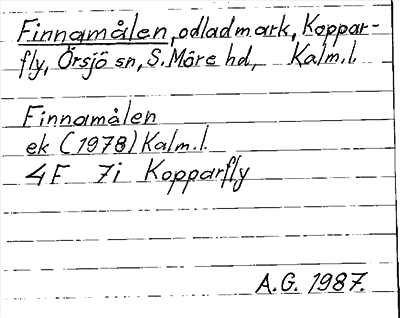 Finnamålen, odladmark, Koppar-
fly, Örsjö sn, S. Möre hd, Kalm. l.
Finnamålen
ek (1978) Kalm. l.
4F 7i Kopparfly
A.G. 1987.